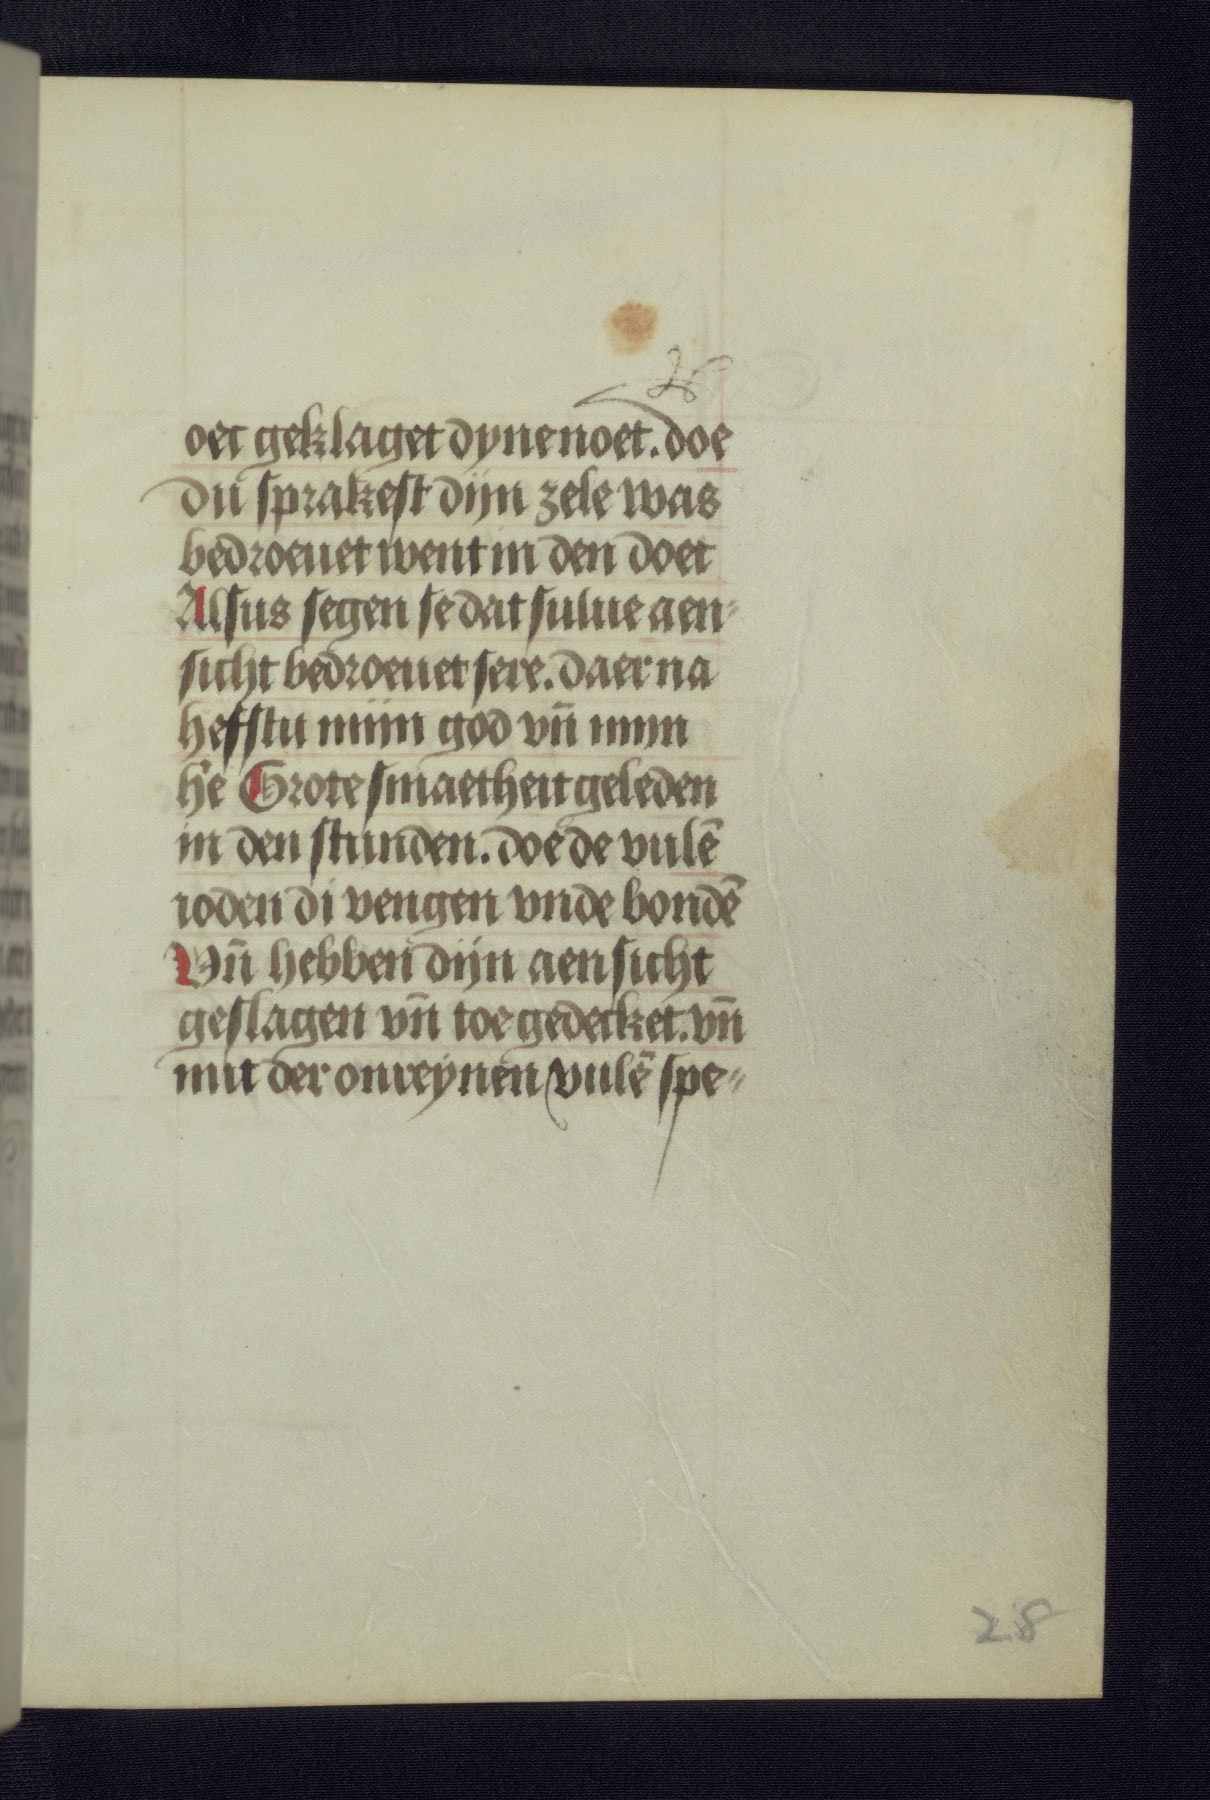 28
oet geklaget dyne noet. doe
du sprakest dijn zele was
bedroeuet went in den doet
Alsus segen se dat sulue aen-
sicht bedroeuet sere. daer na
hefstu mijn god vn̄ mijn
h'e Grote smaetheit geleden
in den stunden. doe de vulē
ioden di vengen vnde bondē
Vn̄ hebben dijn aensicht
geslagen vn̄ toe gedecket. vn̄
mit der onreynen vulē spe-
28